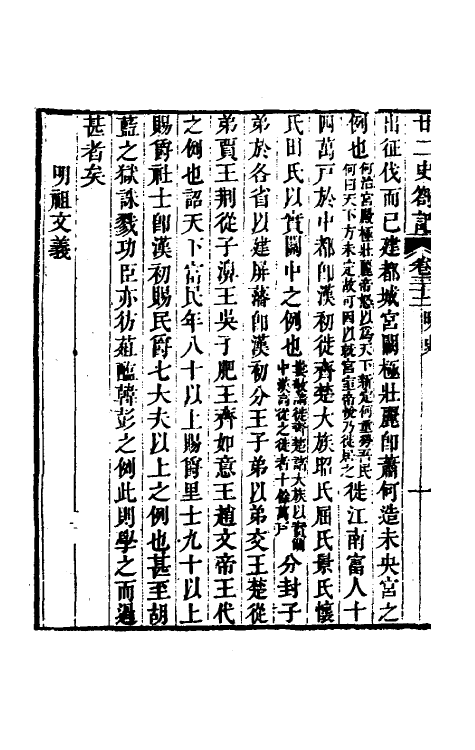 廿二史劄記 卷三十二 明史 十
出征伐而已建都城宮闕極壯麗卽蕭何造未央宮之
例也何治宮殿極壯麗帝怒以爲天下新定何重勞吾民何曰天下方未定故可因以就宮室帝悅乃徙居之徙江南富人十
四萬戶於中都卽漢初徙齊楚大族昭氏屈氏景氏懷
氏田氏以實關中之例也婁敬說徙齊楚諸大族以實關中漢高從之徙者十餘萬戶分封子
弟於各省以建屛藩卽漢初分王子弟以弟交王楚從
弟賈王荆從子濞王吳子肥王齊如意王趙文帝王代
之例也詔天下富民年八十以上賜爵里士九十以上
賜爵社士卽漢初賜民爵七大夫以上之例也甚至胡
藍之獄誅戮功臣亦彷菹醢韓彭之例此則學之而過
甚者矣
明祖文義